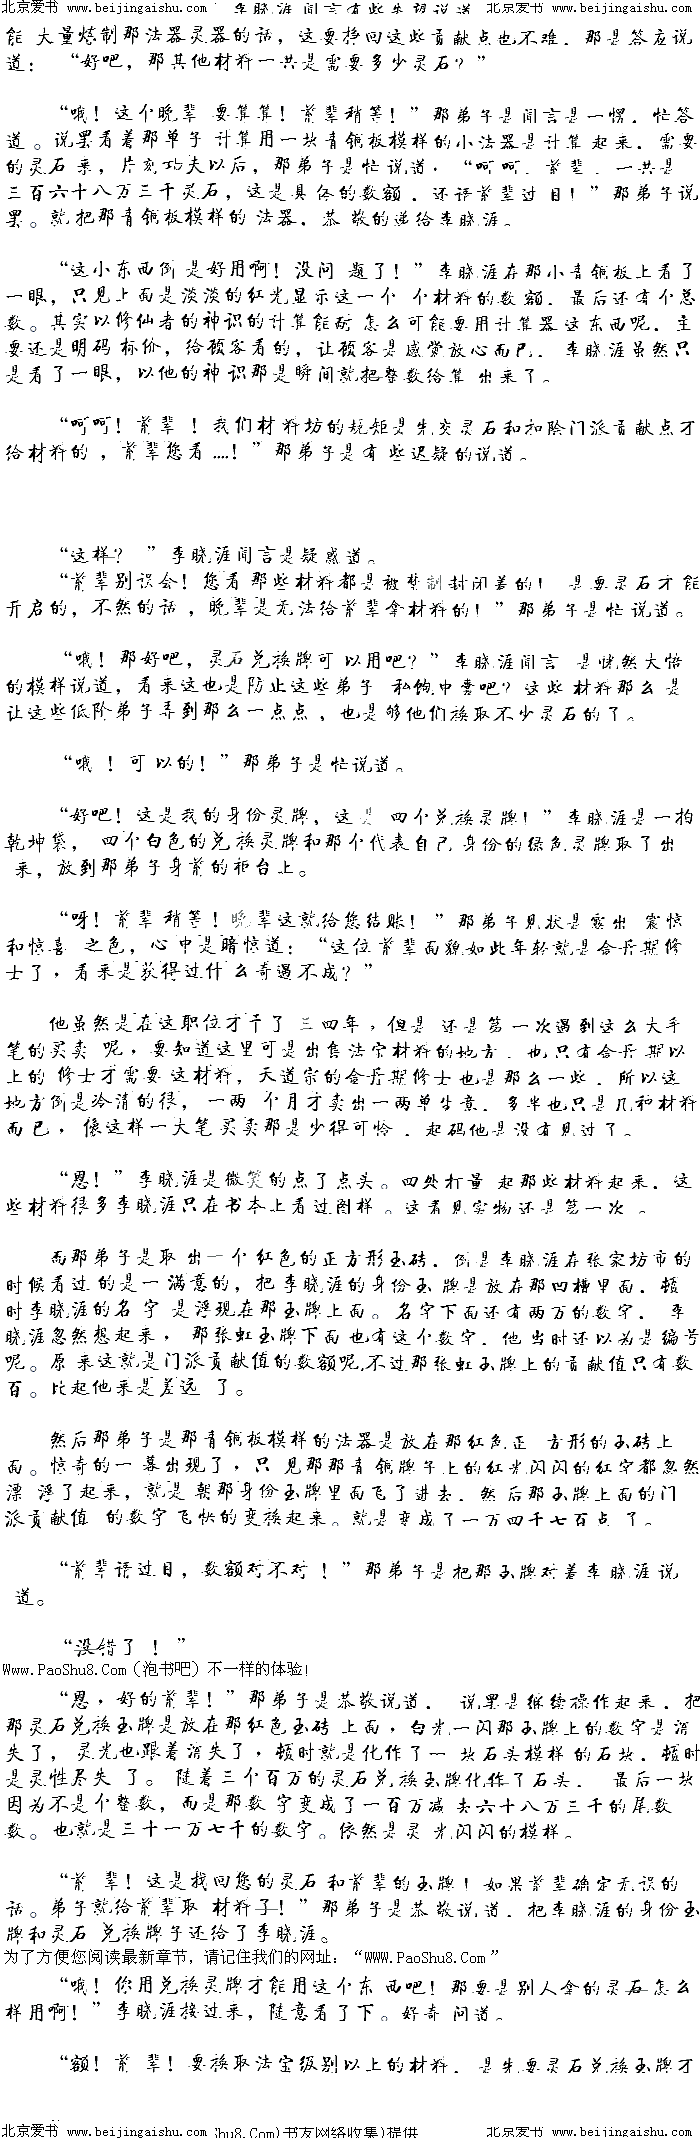 北京爱书 www.beijingaishu.com 李晓涯闻言有些失望说道 北京爱书 www.beijingaishu.com
能 大量炼制那法器灵器的话，这要挣回这些贡献点也不难．那是答应说
道： “好吧，那其他材料一共是需要多少灵石？”
“哦！这个晚辈 要算算！前辈稍等！”那弟子是闻言是一愣．忙答
道。说罢看着那单子 计算用一块青铜板模样的小法器是计算 起来．需要
的灵石 来，片刻功夫以后，那弟子是忙说道，“呵呵．前辈．一共是
三百六十八万三千灵石，这是具体的数额．还请前辈过 目！”那弟子说
罢。就把那青铜板模样的 法器．恭 敬的递给李晓涯。
“这小东西倒 是好用啊！没问 题了！”李晓涯在那小青铜板上看了
一眼，只见上面是淡淡的红光显示这一个 个材料的数额．最后还有个总
数。其实以修仙者的神识的计算能耐 怎么可能要用计算器这东西呢．主
要还是明码 标价，给顾客看的，让顾客是感觉放心而已．李晓涯虽然只
是看了一眼，以他的神 识那是瞬间就把整数给算 出来了。
“呵呵！前辈 ！我们材料坊的规矩是先交灵石和扣除门派贡献点才
给材料的 ，前辈您看 ....！”那弟子是有 些迟疑的说道。
“这样？ ”李晓涯闻言是疑惑道。
“前辈别误会！您看 那些材料都是被禁制封闭着的！ 是要灵石才能
开启的，不然的话 ，晚辈是无法给前辈拿材料的！”那弟子是忙说道。
“哦！那好吧，灵石兑换牌可 以用吧？”李晓涯闻言 是恍然大悟
的模样说道，看来这也是防止这些弟子 私饱中囊吧？这些 材料那么 是
让这些低阶弟子弄到那么一点点 ，也是够他们换取不少灵石的了。
“哦 ！可 以的！”那弟子是忙说道。
“好吧！这是我的身份灵牌，这 是 四个兑换灵牌！”李晓涯是一拍
乾坤袋， 四个白色的兑换灵牌和那个代表自己 身份的绿色灵牌取了出
来，放到那弟子身前的柜台上。
“呀！前辈 稍等！晚辈这就给您结账！ ”那弟子见状是露出 震惊
和惊喜 之色，心 中是暗惊道：“这位 前辈面貌如此年轻就是合丹期修
士了，看来是获得过什么奇遇不成？”
他虽然是在这职位才干了 三四年，但是 还是第一次遇到这么大手
笔的买卖 呢，要知道这里可是出售法宝材料的地方．也只有合丹 期以
上的 修士才需要 这材料，天道宗的合丹期修士也是那么一些．所以这
地方倒是冷清的很， 一两 个月才卖出一两单生意．多半也只是几种材料
而已，像这样一大笔买卖那是少得可怜 ．起码他是没有见过了。
“恩！”李晓涯是微笑的点了点头。四处打量 起那些材料起来．这
些材料很多李晓涯只在书本上看过图样 。这看见实物还是第一次 。
而那弟子是取 出一个红色的正方形玉砖．倒是李晓涯在张家坊市的
时候看过 的是一 满意的，把 李晓涯的身份玉 牌是放在那凹槽里面．顿
时李晓涯的名 字 是浮现在那玉牌上面。名字下面还有两万的数字． 李
晓涯忽然想起来， 那张虹玉牌下面也有这个数字．他当时还以为是编号
呢。原 来这就是门派贡献值的数额呢，不过那张虹玉牌上的贡献值只有数
百。比起他来是差远 了。
然后那弟子是那青铜板模样的法器是放在那红色正 方形的玉砖上
面。惊奇的一 幕出现了，只 见那那青 铜牌子上的红光闪闪的红字都忽然
漂 浮了起来，就是 朝那身份玉牌里面飞了进去．然后那玉牌上面的门
派贡献值 的数字飞快的变换起来。就是变成了一万四千七百点 了。
“前辈请过目，数额对不对 ！”那弟子是把那玉牌对着李晓涯说
道。
“没错了 ！”
Www.PaoShu8.Com（泡书吧）不一样的体验！
“恩，好的前辈！”那弟子是恭敬说道． 说罢是继续操作起来．把
那灵石兑换玉牌是放在那红色玉砖 上面，白光一闪那玉牌上的数字是消
失了，灵光也跟着消失了，顿时就是化作了一 块石头模样 的石块．顿时
是灵性尽失 了。 随着三个百万的灵石兑换玉牌化作了石头． 最后一块
因为不是个整数，而是那数 字变成了一百万减 去六十八万三千的尾数
数。也就是三十一万七千的数字。依然是灵 光闪闪的模样。
“前 辈！这是找回您的灵石 和前辈的玉牌！如果前辈确定无误的
话。弟子就给前辈取 材料了！”那弟子是恭敬说道．把李晓涯的身份玉
牌和灵石 兑换牌子还给了李晓涯。
为了方便您阅读最新章节，请记住我们的网址：“WWW.PaoShu8.Com”
“哦！你用兑换灵牌才能用这个东 西吧！那要是别人拿的灵石怎么
样用啊！”李晓涯接过来，随意看了下。好奇 问道。
“额！前 辈！要换取法宝级别以上的材料．是先要灵石兑换玉牌才
北京爱书 www.beijingaishu.com hu8.Com)书友网络收集)提供 北京爱书 www.beijingaishu.com